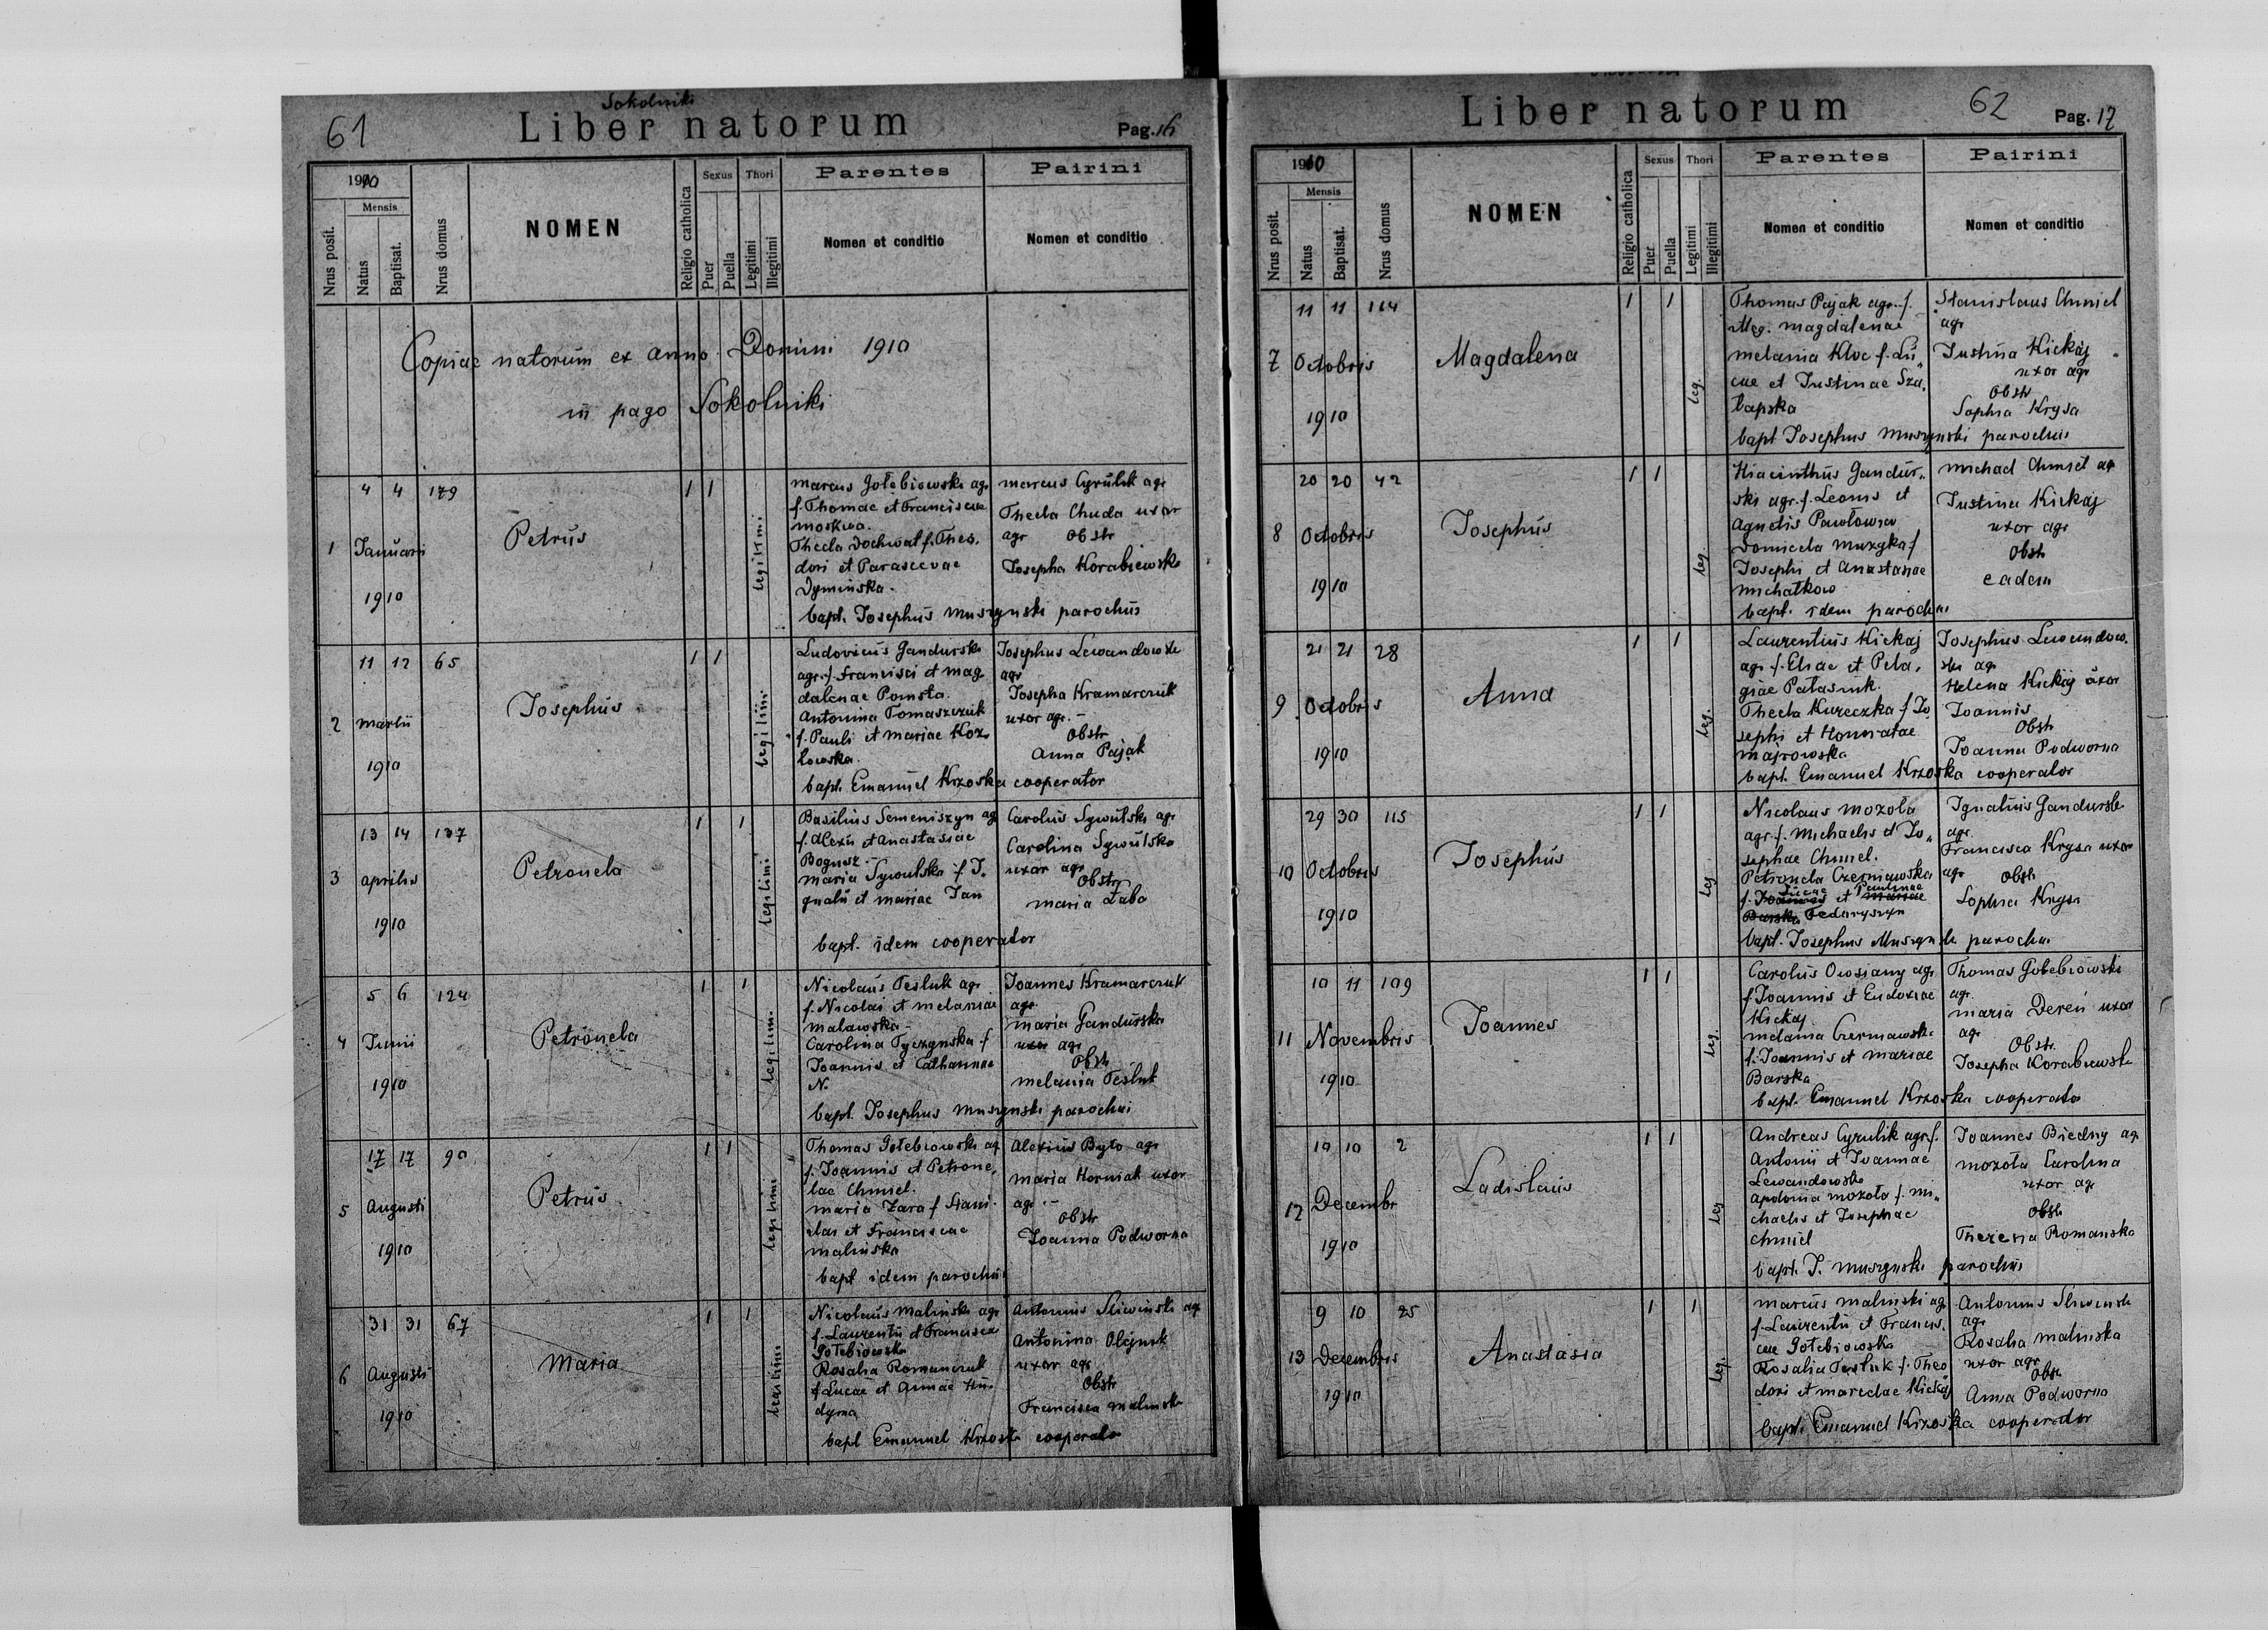 Sokolniki
61
Liber natorum
Pag. 16
1910
Mensis
Nrus posit.
Natus
Baptisat.
Nrus domus
NOMEN
Religio catholica
Sexus
Puer
Puella
Thori
Legitimi
Illegitimi
Parentes
Nomen et conditio
Pairini
Nomen et conditio
Copiae natorum ex anno Domini 1910
in pago Sokolniki
1
4 4 179
Januari
1910
Petrus
1 1
legitimi
Marcus Gołębiowski agr
f. Thomae et Franciscae
Moskwa.
Thecla Dochwat f. Theo.
dori et Parascevae
Dyminska.
Marcus Cyrulik agr
Thecla Chuda uxor
agr Obstr
Josepha Korabiewska
bapt. Josephus Muszynski parochus
2
11 12 65
Martii
1910
Josephus
1 1
legitimi
Ludovicus Gandurski
agr. f. Francisci et Mag
dalenae Pomsta.
Antonina Tomaszczuk
f. Pauli et Mariae Koz
łowska.
Josephus Lewandowski
agr
Josepha Kramarczuk
uxor agr. –
Obstr
Anna Pająk
bapt. Emanuel Krzoska cooperator
3
13 14 137
Aprilis
1910
Petronela
1 1
legitimi
Basilius Semeniszyn ag
f. Alexii et Anastasiae
Bogusz –
Maria Sywulska f. I.
gnatii et Mariae Jan
Carolus Sywulski agr
Carolina Sywulska
uxor agr
Obstr
Maria Żaba
bapt. idem cooperator
4
5 6 124
Junii
1910
Petronela
1 1
legitimi
Nicolaus Tesluk agr
f. Nicolai et Melaniae
Malawska –
Carolina Tyczynska f
Joannis et Catharinae
N.
Joannes Kramarczuk
agr
Maria Gandurska
uxor agr
Obstr
Melania Tesluk
bapt. Josephus Muszynski parochus
5
17 17 90
Augusti
1910
Petrus
1 1
legitimi
Thomas Gołebiowski ag
f. Joannis et Petrone,
lae Chmiel.
Maria Zara f Stani
slai et Franciscae
Malinska
Alexius Byto agr
Maria Horniak uxor
agr. –
Obstr
Joanna Podworna
bapt idem parochus
6
31 31 67
Augusti
1910
Maria
1 1
legitimi
Nicolaus Malinski agr
f. Laurentii et Francisca
Gołebiowska
Rosalia Romanczuk
f Lucae et Annae Hu.
dyma
Antonius Sliwinski agr
Antonina Olejnik
uxor agr
Obstr
Francisca Malinska
bapt Emanuel Krzoska cooperator
Liber natorum
62
Pag. 17
1910
Mensis
Nrus posit.
Natus
Baptisat.
Nrus domus
NOMEN
Religio catholica
Sexus
Puer
Puella
Thori
Legitimi
Illegitimi
Parentes
Nomen et conditio
Pairini
Nomen et conditio
7
11 11 164
Octobris
1910
Magdalena
1 1
leg.
Thomas Pająk agr. f.
Magdalenae
Melania Kloc f. Lu
cae et Justinae Sza.
łapska
Stanislaus Chmiel
agr
Justina Kickaj
uxor agr
Obstr
Sophia Krysa
bapt Josephus Muszynski parochus
8
20 20 42
Octobris
1910
Josephus
1 1
leg
Hiacinthus Gandur.
ski agr. f. Leonis et
Agnetis Pawłowicz
Domicela Muzyka f
Josephi et Anastasiae
Michałkow
Michael Chmiel agr
Justina Kickaj
uxor agr
Obstr
eadem
bapt. idem parochus
9
21 21 28
Octobris
1910
Anna
1 1
leg.
Laurentius Kickaj
agr. f. Eliae et Pela,
giae Patasiuk.
Thecla Kureczka f Jo
sephi et Honoratae
Majrowska
Josephus Lewandow.
ski agr
Helena Kickaj uxor
Joannis
Obstr
Joanna Podworna
bapt. Emanuel Krzoska cooperator
10
29 30 115
Octobris
1910
Josephus
1 1
leg
Nicolaus Mozoła
agr. f. Michaelis et Jo
sephae Chmiel.
Petronela Czerniawska
Lucae Paulinae
f. Joannis et Mariae
Barska Fedaryszyn
Ignatius Gandurski
agr.
Francisca Krysa uxor
agr Obstr
Sophia Krysa
bapt. Josephus Muszynski parochus
11
10 11 109
Novembris
1910
Joannes
1 1
leg.
Carolus Owsiany agr
f Joannis et Eudoxiae
Kickaj
Melania Czerniawska
f. Joannis et Mariae
Barska
Thomas Gołebiowski
agr
Maria Dereń uxor
agr
Obstr
Josepha Korabiewska
bapt. Emanuel Krzoska cooperator
12
10 10 2
Decembr
1910
Ladislaus
1 1
leg
Andreas Cyrulik agr. f.
Antonii et Joannae
Lewandowska
Apolonia Mozoła f. Mi
chaelis et Josephae
Chmiel
Joannes Biedny agr
Mozoła Carolina
uxor agr
Obstr
Theresa Romanska
bapt. J. Muszynski parochus
13
9 10 25
Decembris
1910
Anastasia
1 1
leg.
Marcus Malinski ag
f. Laurentii et Francis.
cae Gołebiowska
Rosalia Tesluk f. Theo
dori et Mariae Kickaj
Antonius Sliwinski
agr
Rosalia Malinska
uxor agr
Obstr
Anna Podworna
bapt. Emanuel Krzoska cooperator